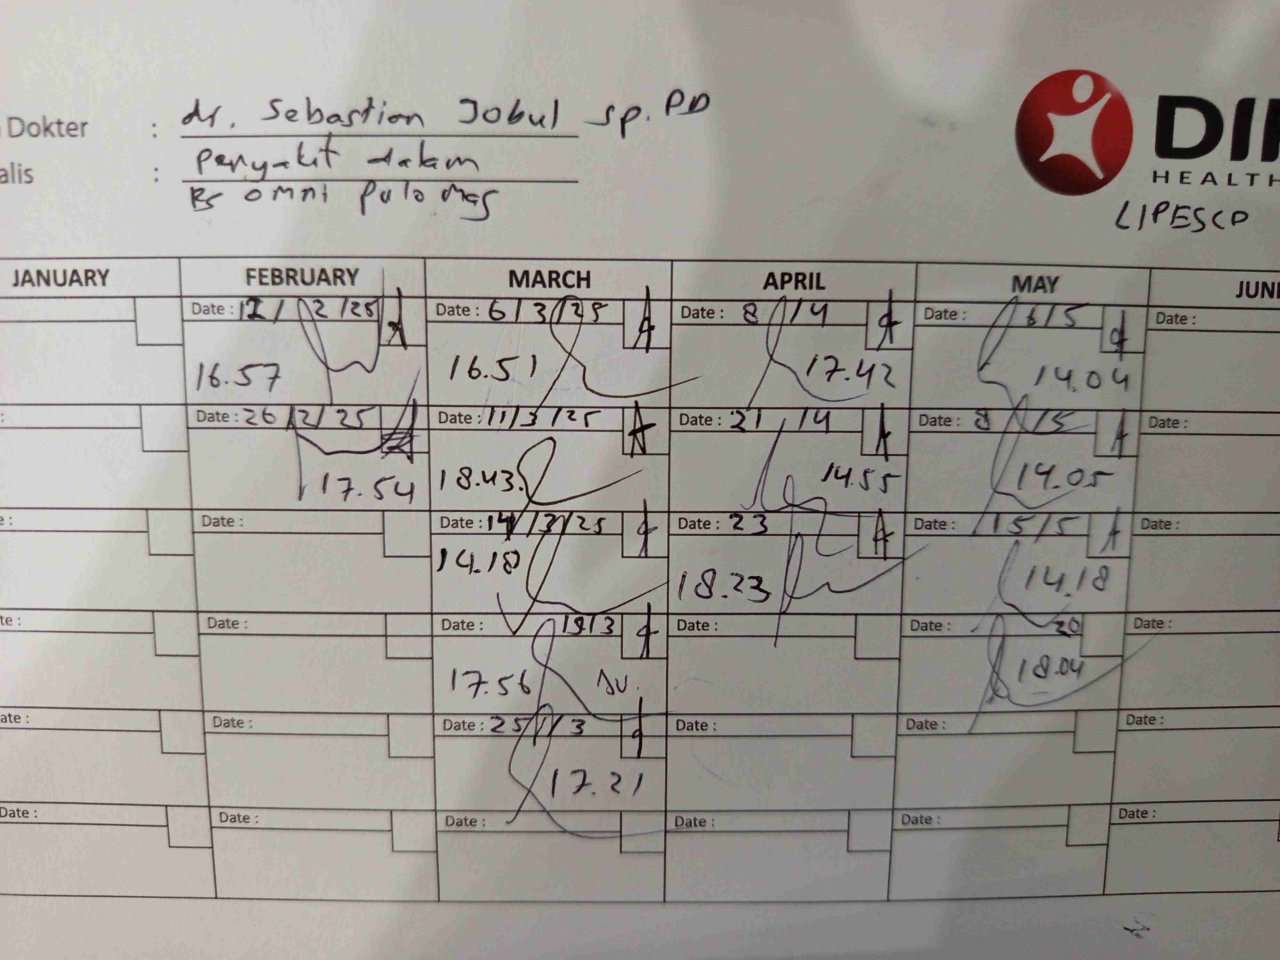 Dokter : dr. Sebastian Jobul sp.PD
alis : Penyakit dalam
RS omni pulo mas
DI
HEALTH
LIPESCO
JANUARY FEBRUARY MARCH APRIL MAY JUN
Date : 12/2/25 A Date : 6/3/25 A Date : 8/4 Date : 6/5 Date :
16.57 16.51 17.42 14.04
: Date : 26/2/25 Date : 11/3/25 A Date : 21/4 A Date : 8/5 A Date :
17.54 18.43 14.55 14.05
e : Date : Date : 14/3/25 Date : 23 A Date : 15/5 A Date :
14.18 18.23 14.18
te : Date : Date : 19/3 Date : Date : 20 Date :
17.56 18.04
ate : Date : Date : 25/3 Date : Date : Date :
17.21
Date : Date : Date : Date : Date : Date :